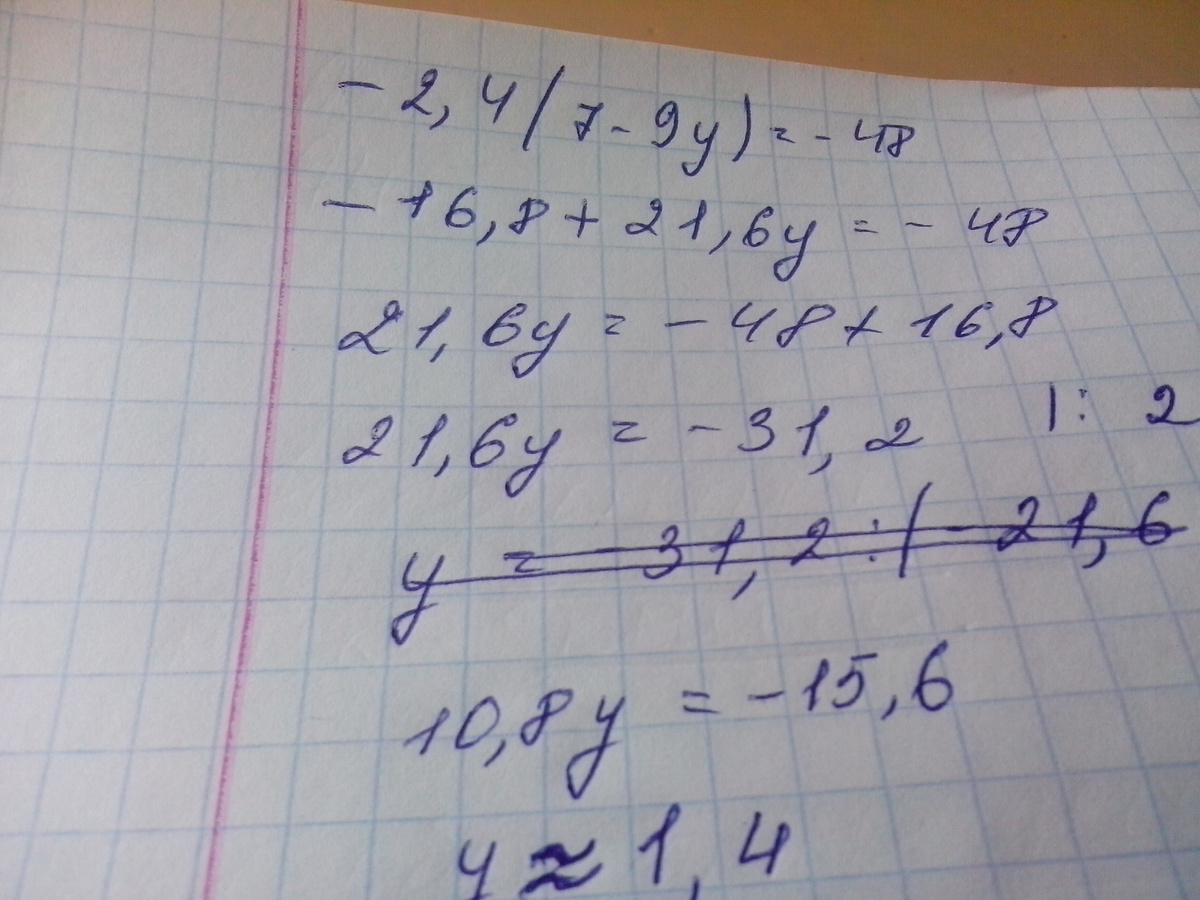 -2,4(7-9y)=-48
-16,8+21,6y=-48
21,6y=-48+16,8
21,6y=-31,2 |: 2
y=-31,2:(-21,6
10,8y=-15,6
y≈1,4